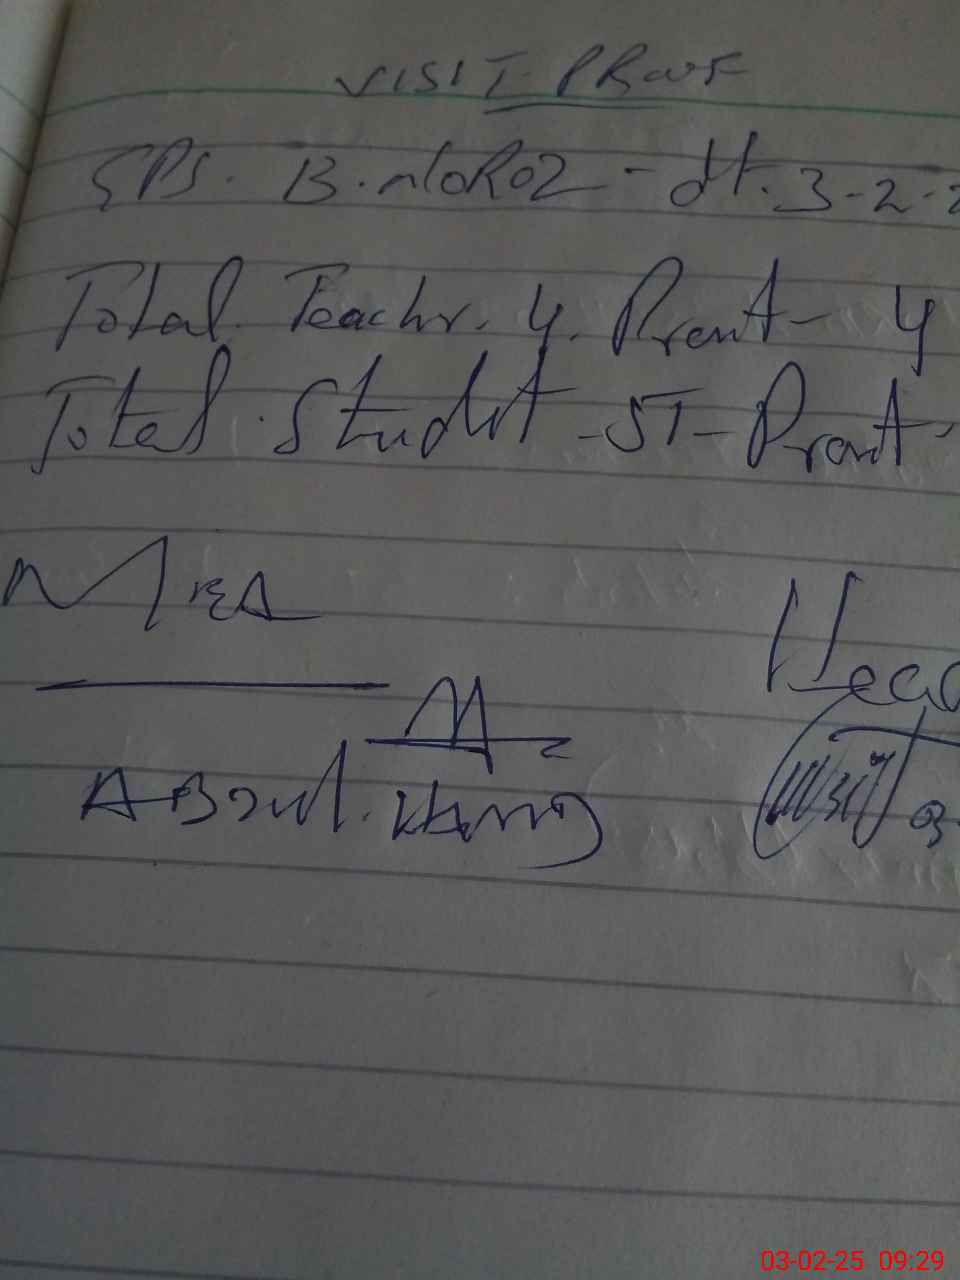 VISIT PROOF
GPS. B. NOROZ - dt. 3-2-2
Total. Teachr. 4. Prent - 4
Total. Studnt - 51 - Prent -
MEA
Head
ABDUL. HAMID
03-02-25 09:29